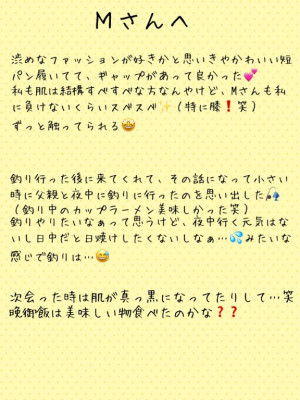 Mさんへ
渋めなファッションが好きかと思いきやかわいい短
パン履いてて、ギャップがあって良かった💕
私も肌は結構すべすべな方なんやけど、Mさんも私
に負けないくらいスベスベ✨（特に膝❗笑）
ずっと触ってられる🤩
釣り行った後に来てくれて、その話になって小さい
時に父親と夜中に釣りに行ったのを思い出した🎣
（釣り中のカップラーメン美味しかった笑）
釣りやりたいなぁって思うけど、夜中行く元気はな
いし日中だと日焼けしたくないしなぁ…💦みたいな
感じで釣りは…😅
次会った時は肌が真っ黒になってたりして…笑
晩御飯は美味しい物食べたのかな❓❓